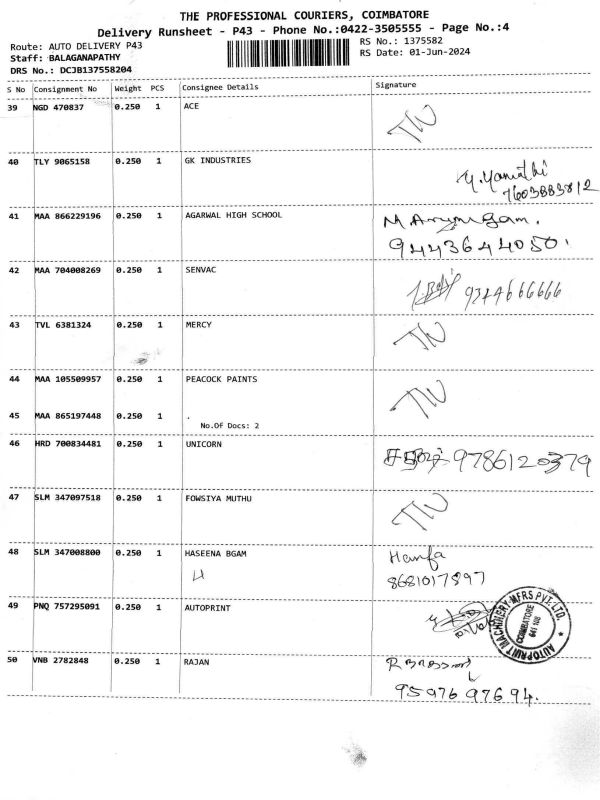 THE PROFESSIONAL COURIERS, COIMBATORE
Delivery Runsheet - P43 - Phone No.:0422-3505555 - Page No.:4
Route: AUTO DELIVERY P43
RS No.: 1375582
Staff: BALAGANAPATHY
RS Date: 01-Jun-2024
DRS No.: DCJB137558204
S No Consignment No Weight PCS Consignee Details Signature
39 NGD 470837 0.250 1 ACE
40 TLY 9065158 0.250 1 GK INDUSTRIES
7603883812
41 MAA 866229196 0.250 1 AGARWAL HIGH SCHOOL M Arumugam.
9443644050.
42 MAA 704008269 0.250 1 SENVAC
9344666666
43 TVL 6381324 0.250 1 MERCY
44 MAA 105509957 0.250 1 PEACOCK PAINTS
45 MAA 865197448 0.250 1 .
No.Of Docs: 2
46 HRD 700834481 0.250 1 UNICORN 9786120379
47 SLM 347097518 0.250 1 FOWSIYA MUTHU
48 SLM 347008800 0.250 1 HASEENA BGAM Hanfa
8681017897
49 PNQ 757295091 0.250 1 AUTOPRINT
AUTOPRINT MACHINERY MFRS PVT. LTD.
COIMBATORE
641 108
50 VNB 2782848 0.250 1 RAJAN
95976 97694.